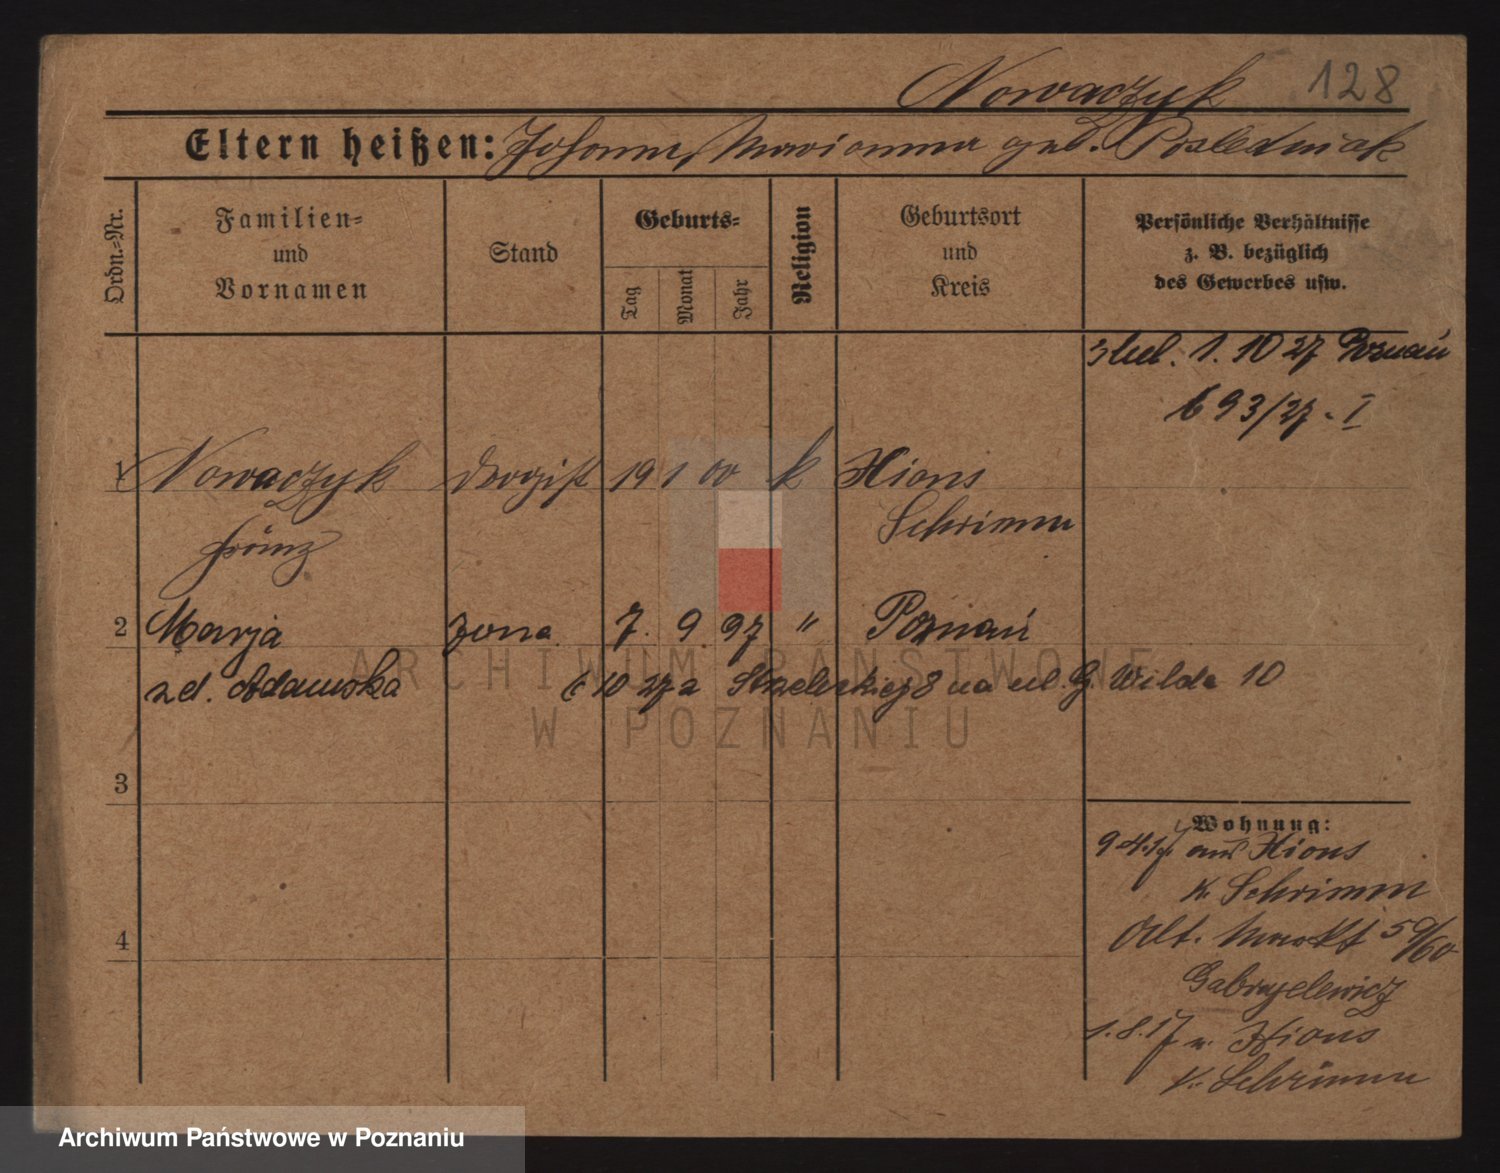 Nowaczyk 128
Eltern heißen: Johann, Marianna geb. Posledniak
Ordn.=Nr.
Familien=
und
Vornamen
Stand
Geburts=
Tag
Monat
Jahr
Religion
Geburtsort
und
Kreis
Persönliche Verhältnisse
z. B. bezüglich
des Gewerbes usw.
1. 10 27 Poznań
693/27 - I
1 Nowaczyk Drogist 19 1 00 k Xions
Franz Schrimm
2 Marja żona 7. 9. 97 " Poznań
zd. Adamska 10 27 z Strzeleckiej 8 na ul. G. Wilda 10
3
4
Wohnung:
9.4.17. aus Xions
K. Schrimm
Alt. Markt 59/60
Gabryelewicz
1.8.17 n. Xions
K. Schrimm
ARCHIWUM PAŃSTWOWE
W POZNANIU
Archiwum Państwowe w Poznaniu